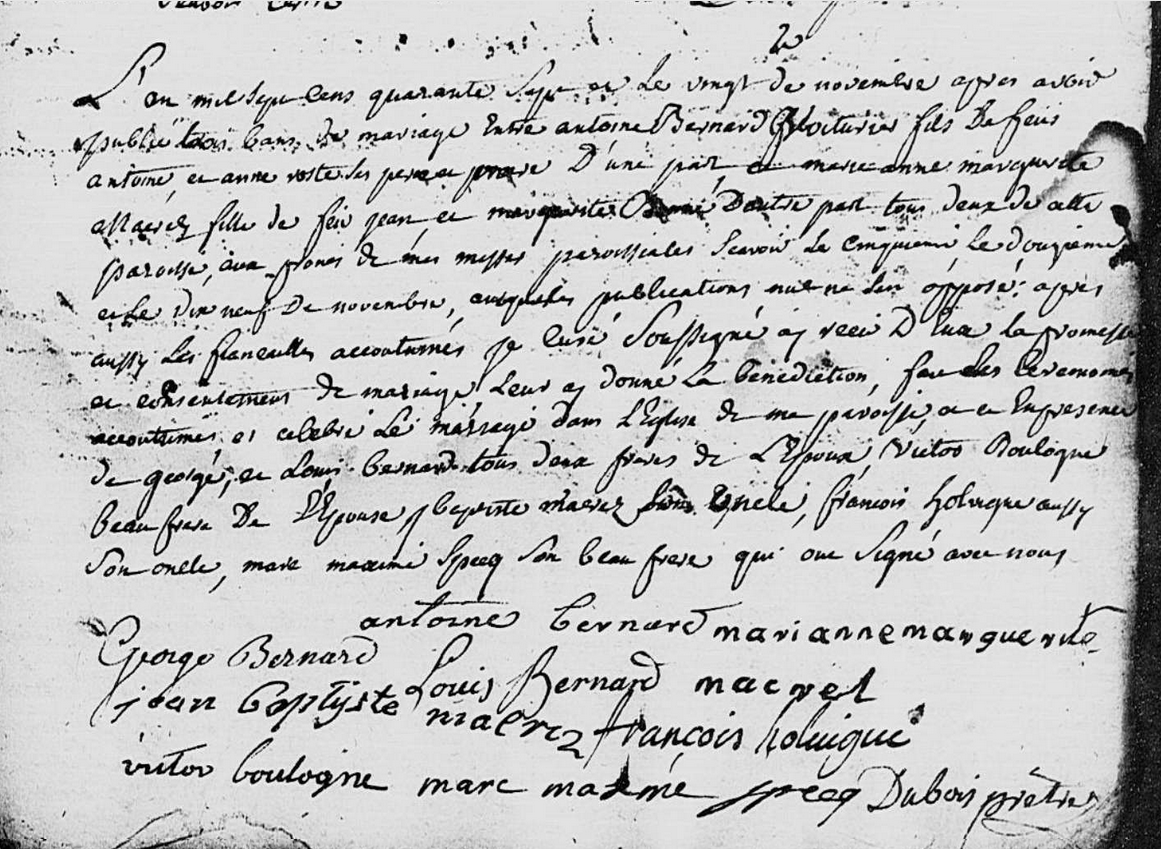 2
L'an mil sept cens quarante sept et le vingt de novembre apres avoir
publié trois bans de mariage Entre antoine Bernard voiturier fils De feus
antoine, et anne ses pere et mere D'une part et marie anne marguerite
Macrez fille de feu jean et marguerite D'autre part tous deux de cette
paroisse, aux prones de mes messes paroissiales scavoir le cinquieme, le douzieme
et le dix neuf De novembre, auxquelles publications nul ne s'est opposé: apres
aussy les fiancailles accoutumés je curé soussigné ay recu D'Eux la promesse
et consentement de mariage, leur ay donné la benediction, fait les ceremonies
accoutumés et celebré le mariage dans l'Eglise de ma paroisse, et ce En presence
de george, et Louis bernard tous deux freres de L'Epoux, victor Boulogne
beau frere De l'Epouse, j baptiste maerez son oncle, françois holuigue aussy
son oncle, marc maximé specq son beau frere qui ont signé avec nous
antoine bernard marianne marguerite
George Bernard Louis Bernard macrel
jean baptyste maerez françois holuigue
victor boulogne marc maximé specq Dubois prêtre